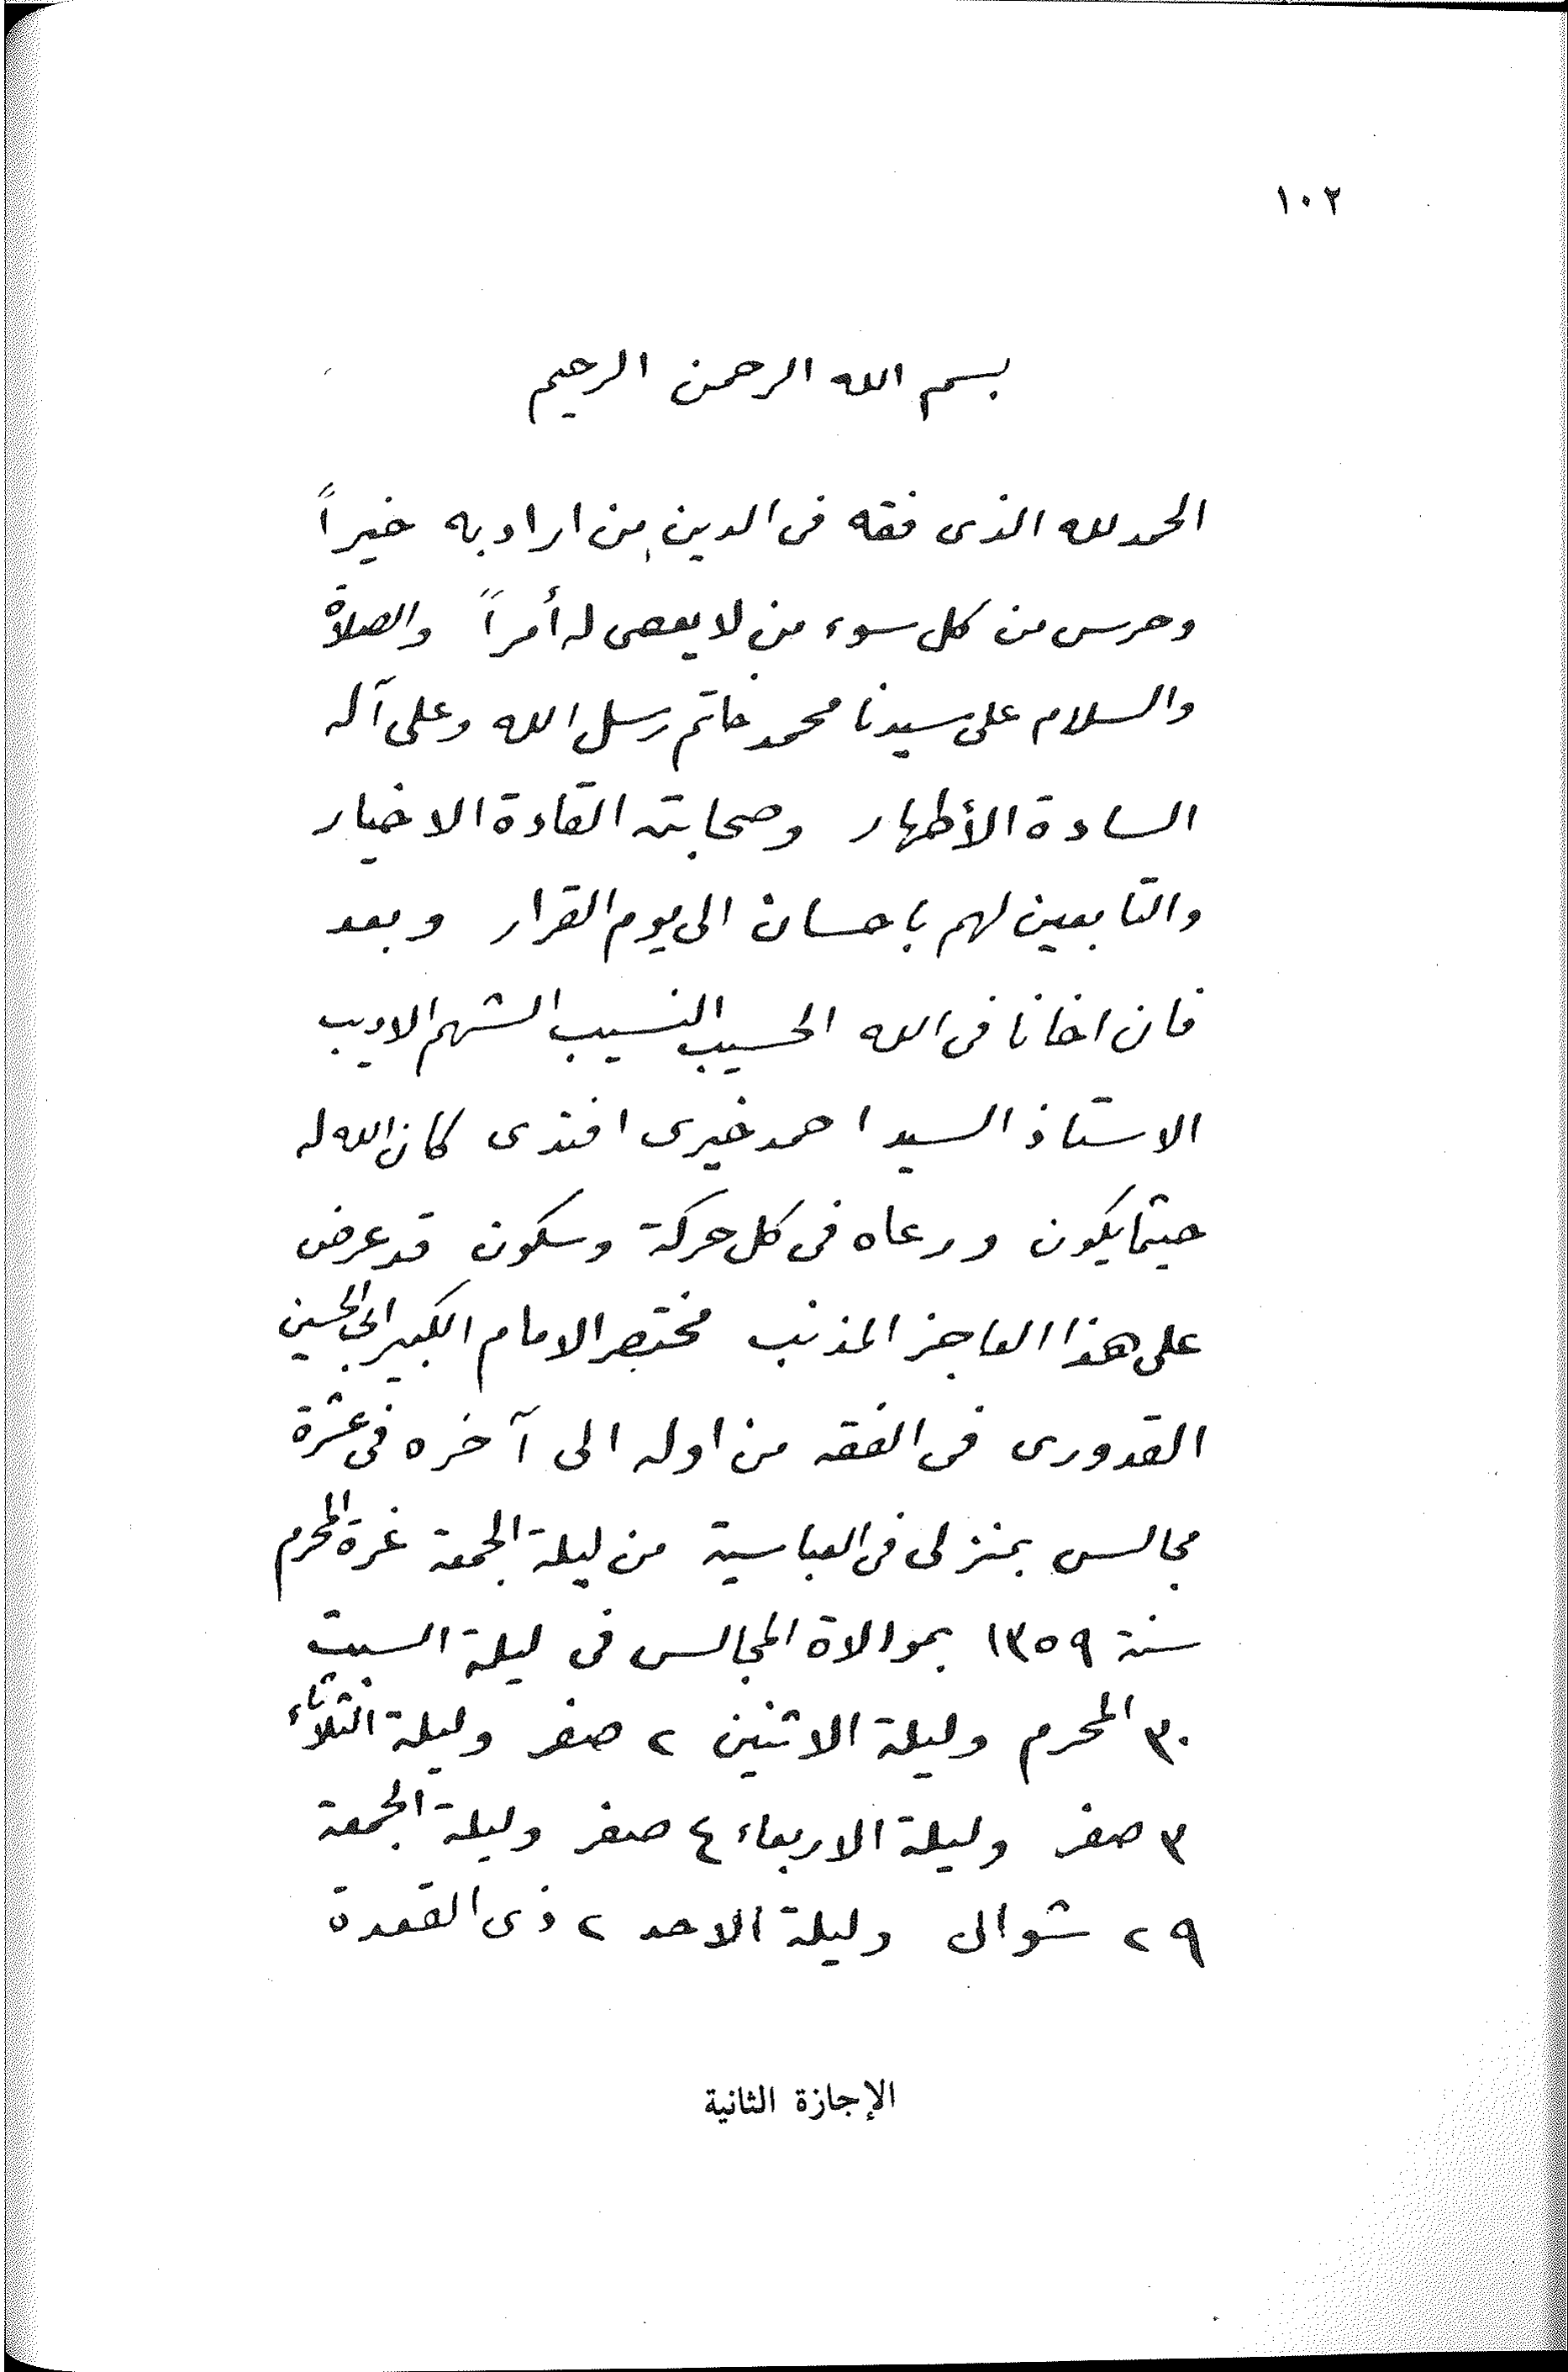 ١٠٢
بسم الله الرحمن الرحيم
الحمد لله الذى فقه فى الدين من اراد به خيراً
وحرس من كل سوء من لا يعصى له أمراً والصلاة
والسلام على سيدنا محمد خاتم رسل الله وعلى آله
السادة الأطهار وصحابته القادة الاخيار
والتابعين لهم باحسان الى يوم القرار وبعد
فان اخانا فى الله الحسيب النسيب الشهم الاديب
الاستاذ السيد احمد خيرى افندى كان الله له
حيثما يكون ورعاه فى كل حركة وسكون قد عرض
على هذا العاجز المذنب مختصر الامام الكبير ابى الحسين
القدورى فى الفقه من اوله الى آخره فى عشرة
مجالس بمنزلى فى العباسية من ليلة الجمعة غرة المحرم
سنة ١٣٥٩ بموالاة المجالس فى ليلة السبت
٣٠ المحرم وليلة الاثنين ٢ صفر وليلة الثلاثاء
٣ صفر وليلة الاربعاء ٤ صفر وليلة الجمعة
٢٩ شوال وليلة الاحد ٢ ذى القعدة
الإجازة الثانية